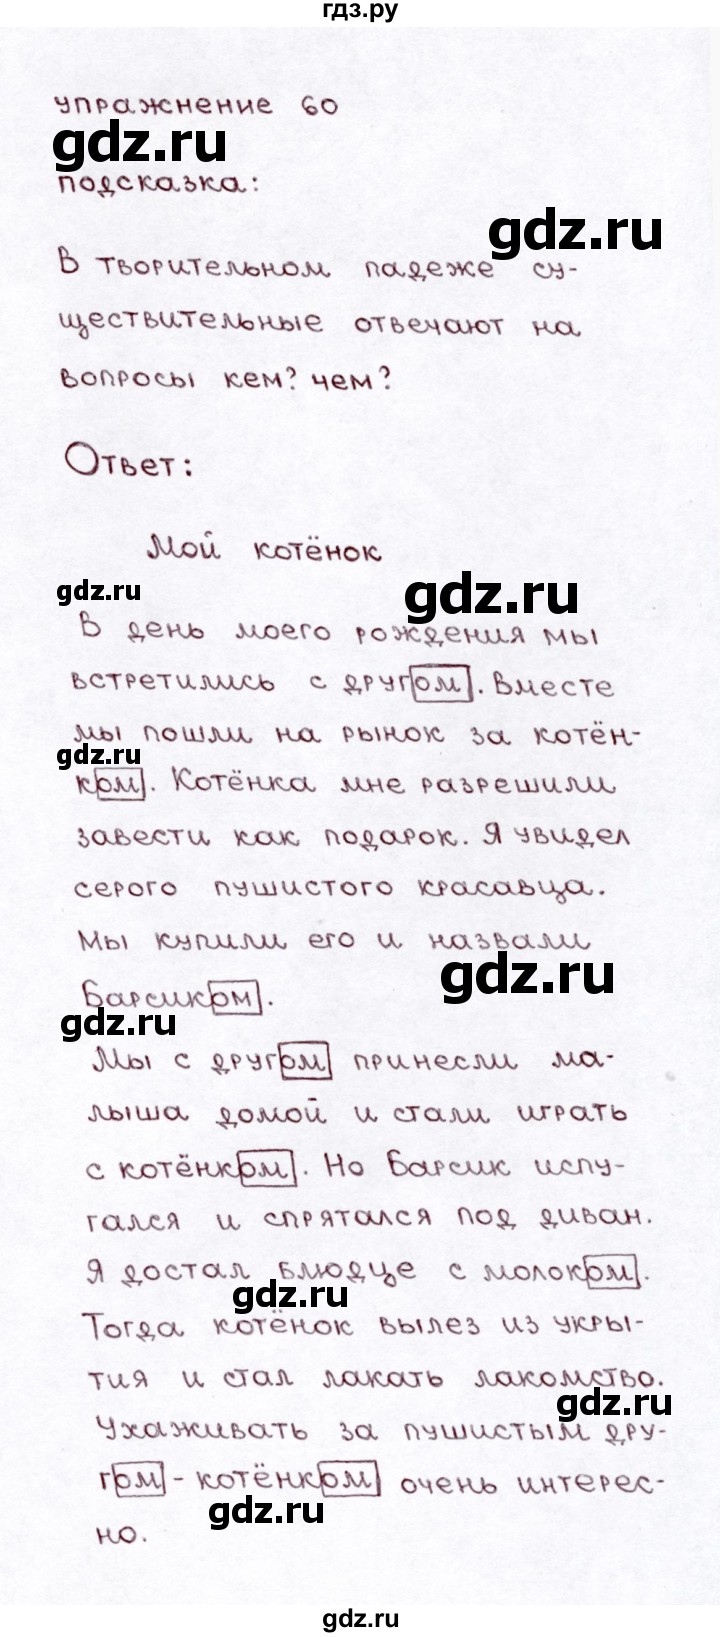 гдз.ру
упражнение 60
gdz.ru
подсказка:
gdz.ru
В творительном падеже су-
ществительные отвечают на
вопросы кем? чем?
Ответ:
Мой котёнок
gdz.ru
gdz.ru
В день моего рождения мы
встретились с другом. Вместе
мы пошли на рынок за котён-
gdz.ru
ком. Котёнка мне разрешили
завести как подарок. Я увидел
серого пушистого красавца.
Мы купили его и назвали
gdz.ru
Барсиком.
gdz.ru
Мы с другом принесли ма-
лыша домой и стали играть
с котёнком. Но Барсик испу-
гался и спрятался под диван.
Я достал блюдце с молоком.
gdz.ru
Тогда котёнок вылез из укры-
тия и стал лакать лакомство.
gdz.ru
Ухаживать за пушистым дру-
гом - котёнком очень интерес-
gdz.ru
но.
gdz.ru